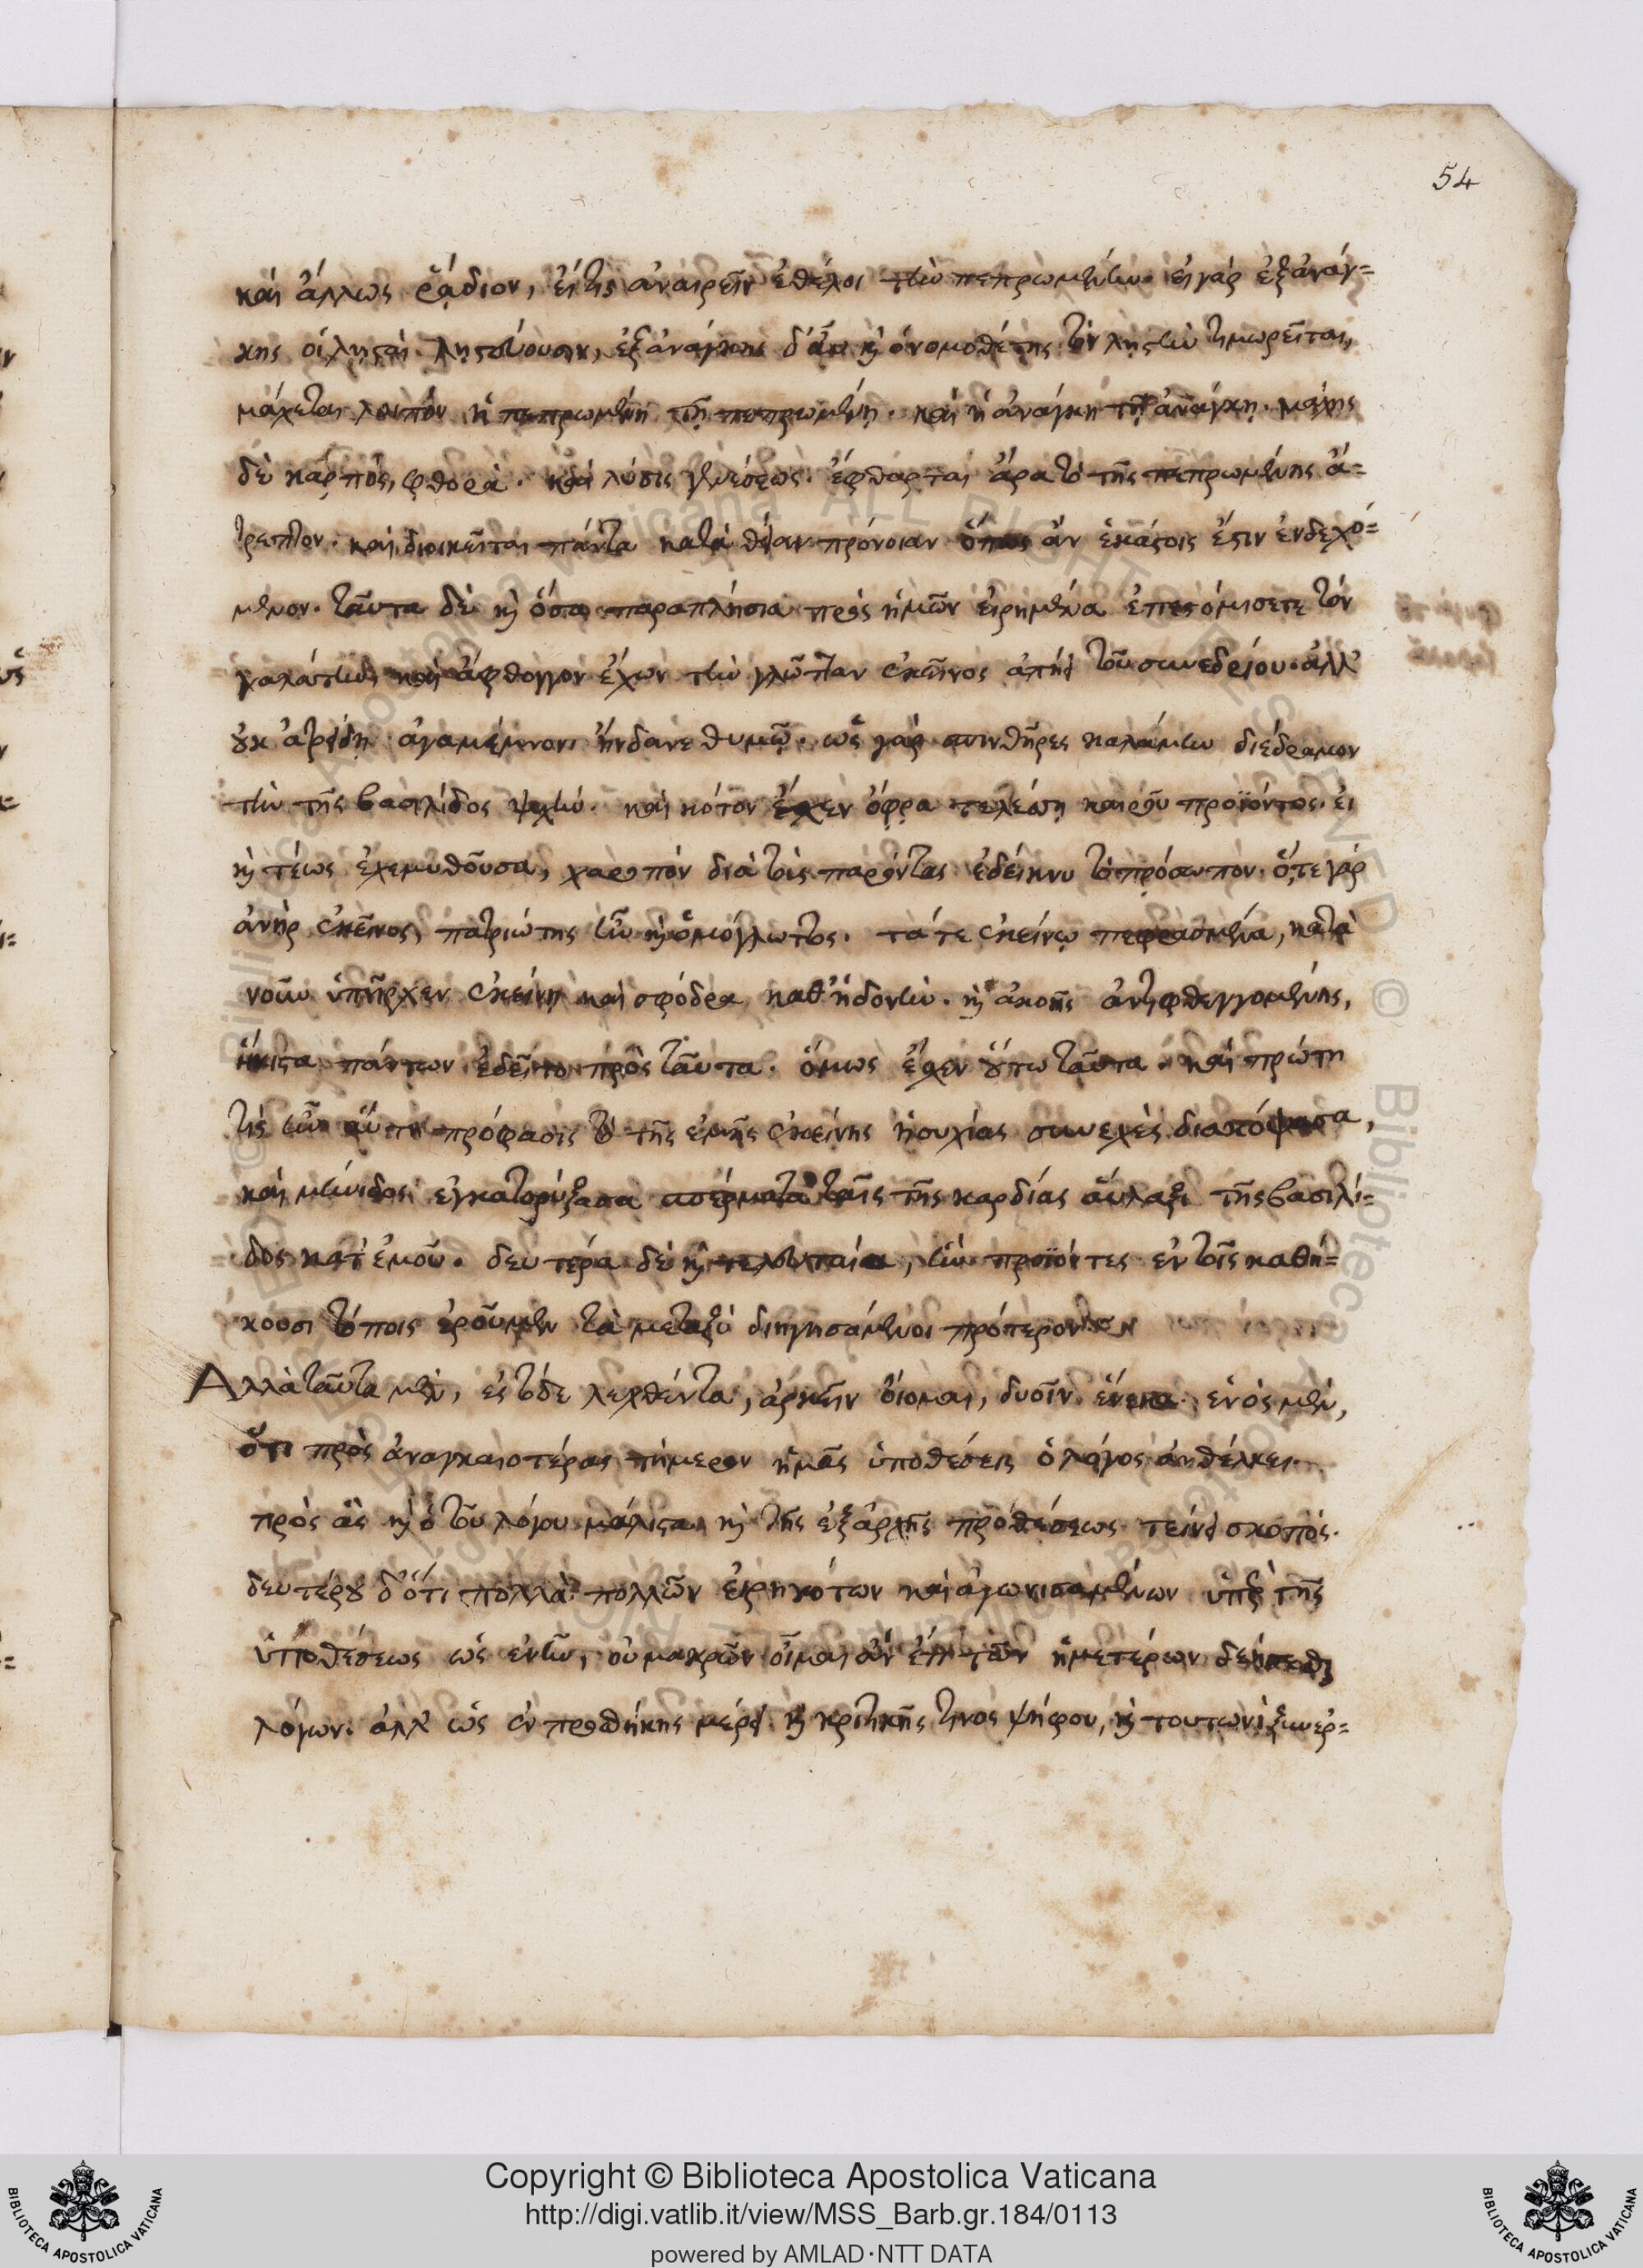 54
καὶ ἄλλως ῥᾴδιον, εἴ τις ἀναιρεῖν ἐθέλοι τὴν πεπρωμένην. εἰ γὰρ ἐξ ἀνάγ=
κης οἱ λῃσταὶ λῃστεύουσιν, ἐξ ἀνάγκης δ' αὖ καὶ ὁ νομοθέτης τὸν λῃστὴν τιμωρεῖται,
μάχεται λοιπὸν ἡ πεπρωμένη τῇ πεπρωμένῃ. καὶ ἡ ἀνάγκη τῇ ἀνάγκῃ. μάχης
δὲ καρπὸς, φθορὰ. καὶ λύσις γενέσεως. ἔφθαρται ἄρα τὸ τῆς πεπρωμένης ἄ=
τρεπτον. καὶ διοικεῖται πάντα κατὰ θείαν πρόνοιαν ὅπως ἂν ἑκάστοις ἔστιν ἐνδεχό=
μενον. ταῦτα δὲ καὶ ὅσα παραπλήσια πρὸς ἡμῶν εἰρημένα ἐπεστόμισέ τε τὸν
γαλάτην, καὶ ἄφθογγον ἔχων τὴν γλῶτταν ἐκεῖνος ἀπῄει τοῦ συνεδρίου. ἀλλ'
οὐκ ἀτρείδῃ ἀγαμέμνονι ἥνδανε θυμῷ. ὡς γὰρ σπινθῆρες καλάμην διέδραμον
τὴν τῆς βασιλίδος ψυχήν. καὶ κότον ἔχεν ὄφρα τελέσῃ καιροῦ προϊόντος. εἰ
καὶ τέως ἐχεμυθοῦσα, χαροπὸν διὰ τοὺς παρόντας ἐδείκνυ τὸ πρόσωπον. ὅ, τε γὰρ
ἀνὴρ ἐκεῖνος, πατριώτης ἦν καὶ ὁμόγλωττος. τά τε ἐκείνῳ πεφρασμένα, κατὰ
νοῦν ὑπῆρχεν ἐκείνῃ καὶ σφόδρα καθ' ἡδονήν. καὶ ἀκοῆς ἀντιφθεγγομένης,
ἥκιστα πάντων ἐδεῖτο πρὸς ταῦτα. ὅμως ἔσχεν οὕτω ταῦτα. καὶ πρώτη
τίς ἦν αὕτη πρόφασις τὸ τῆς ἐμῆς ἐκείνης ἡσυχίας συνεχὲς διακόψασα,
καὶ μήνιδος ἐγκατορύξασα σπέρματα ταῖς τῆς καρδίας αὔλαξι τῆς βασιλί=
δος κατ' ἐμοῦ. δευτέρα δὲ καὶ τελευταία, ἣν προϊόντες ἐν τοῖς καθή=
κουσι τόποις ἐροῦμεν τὰ μεταξὺ διηγησάμενοι πρότερον
Ἀλλὰ ταῦτα μὲν, ἐς τόδε λεχθέντα, ἀρκεῖν οἴομαι, δυοῖν ἕνεκα. ἑνὸς μὲν,
ὅτι πρὸς ἀναγκαιοτέρας τήμερον ἡμᾶς ὑποθέσεις ὁ λόγος ἀνθέλκει.
πρὸς ἃς καὶ ὁ τοῦ λόγου μάλιστα καὶ τῆς ἐξ ἀρχῆς προθέσεως τείνει σκοπός.
δευτέρου δ' ὅτι πολλὰ πολλῶν εἰρηκότων καὶ ἀγωνισαμένων ὑπὲρ τῆς
ὑποθέσεως ὡς ἐνῆν, οὐ μακρῶν οἶμαι ἂν ἔτι τῶν ἡμετέρων δεήσεσθαι
λόγων. ἀλλ' ὡς ἐν προσθήκης μέρει καὶ κριτικῆς τινος ψήφου, καὶ τουτωνὶ ξυνερ=
Copyright © Biblioteca Apostolica Vaticana
http://digi.vatlib.it/view/MSS_Barb.gr.184/0113
powered by AMLAD·NTT DATA
BIBLIOTECA APOSTOLICA VATICANA
BIBLIOTECA APOSTOLICA VATICANA